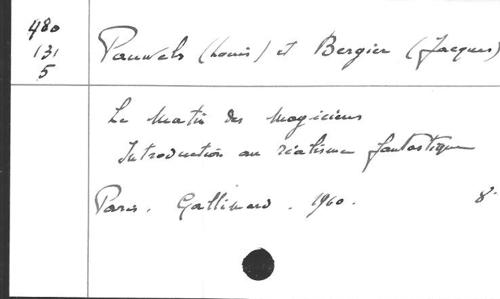 480
131
5
Pauwels (Louis) et Bergier (Jacques)
Le Matin des Magiciens
Introduction au réalisme fantastique
Paris. Gallimard. 1960. 8°